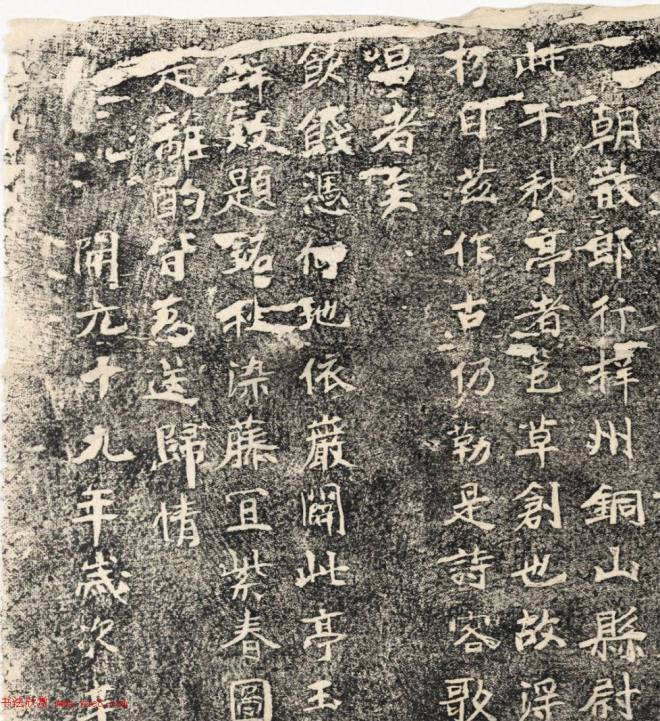 朝散郎行梓州銅山縣尉
此千秋亭者邑草創也故深
日茲作古仍勒是詩客歌
唱者矣
飲餞憑何地依巖闢此亭玉
題染藤冝紫春圖
離酌皆為送歸情
開元十九年歲次辛
书法欣赏